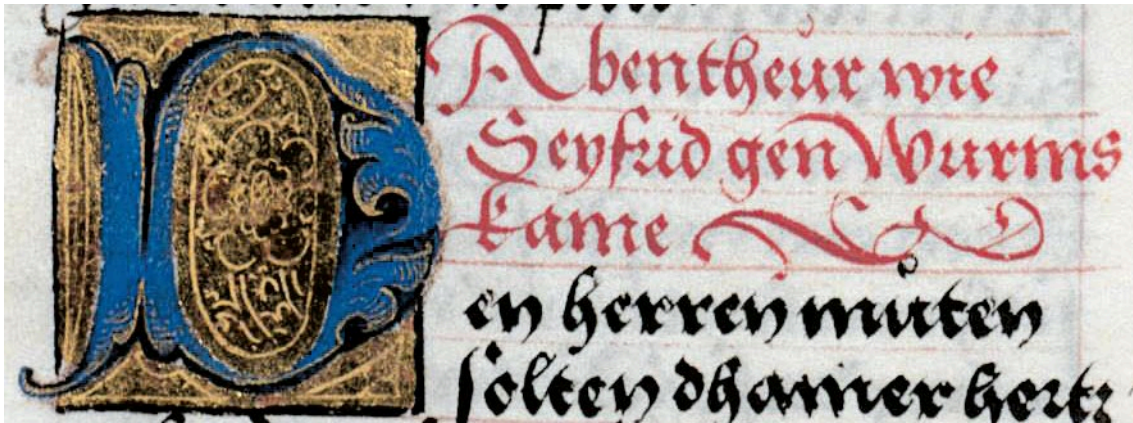 Abentheur wie
Seyfrid gen Wurms
kame
Den herren můten
solten dhainer hertz